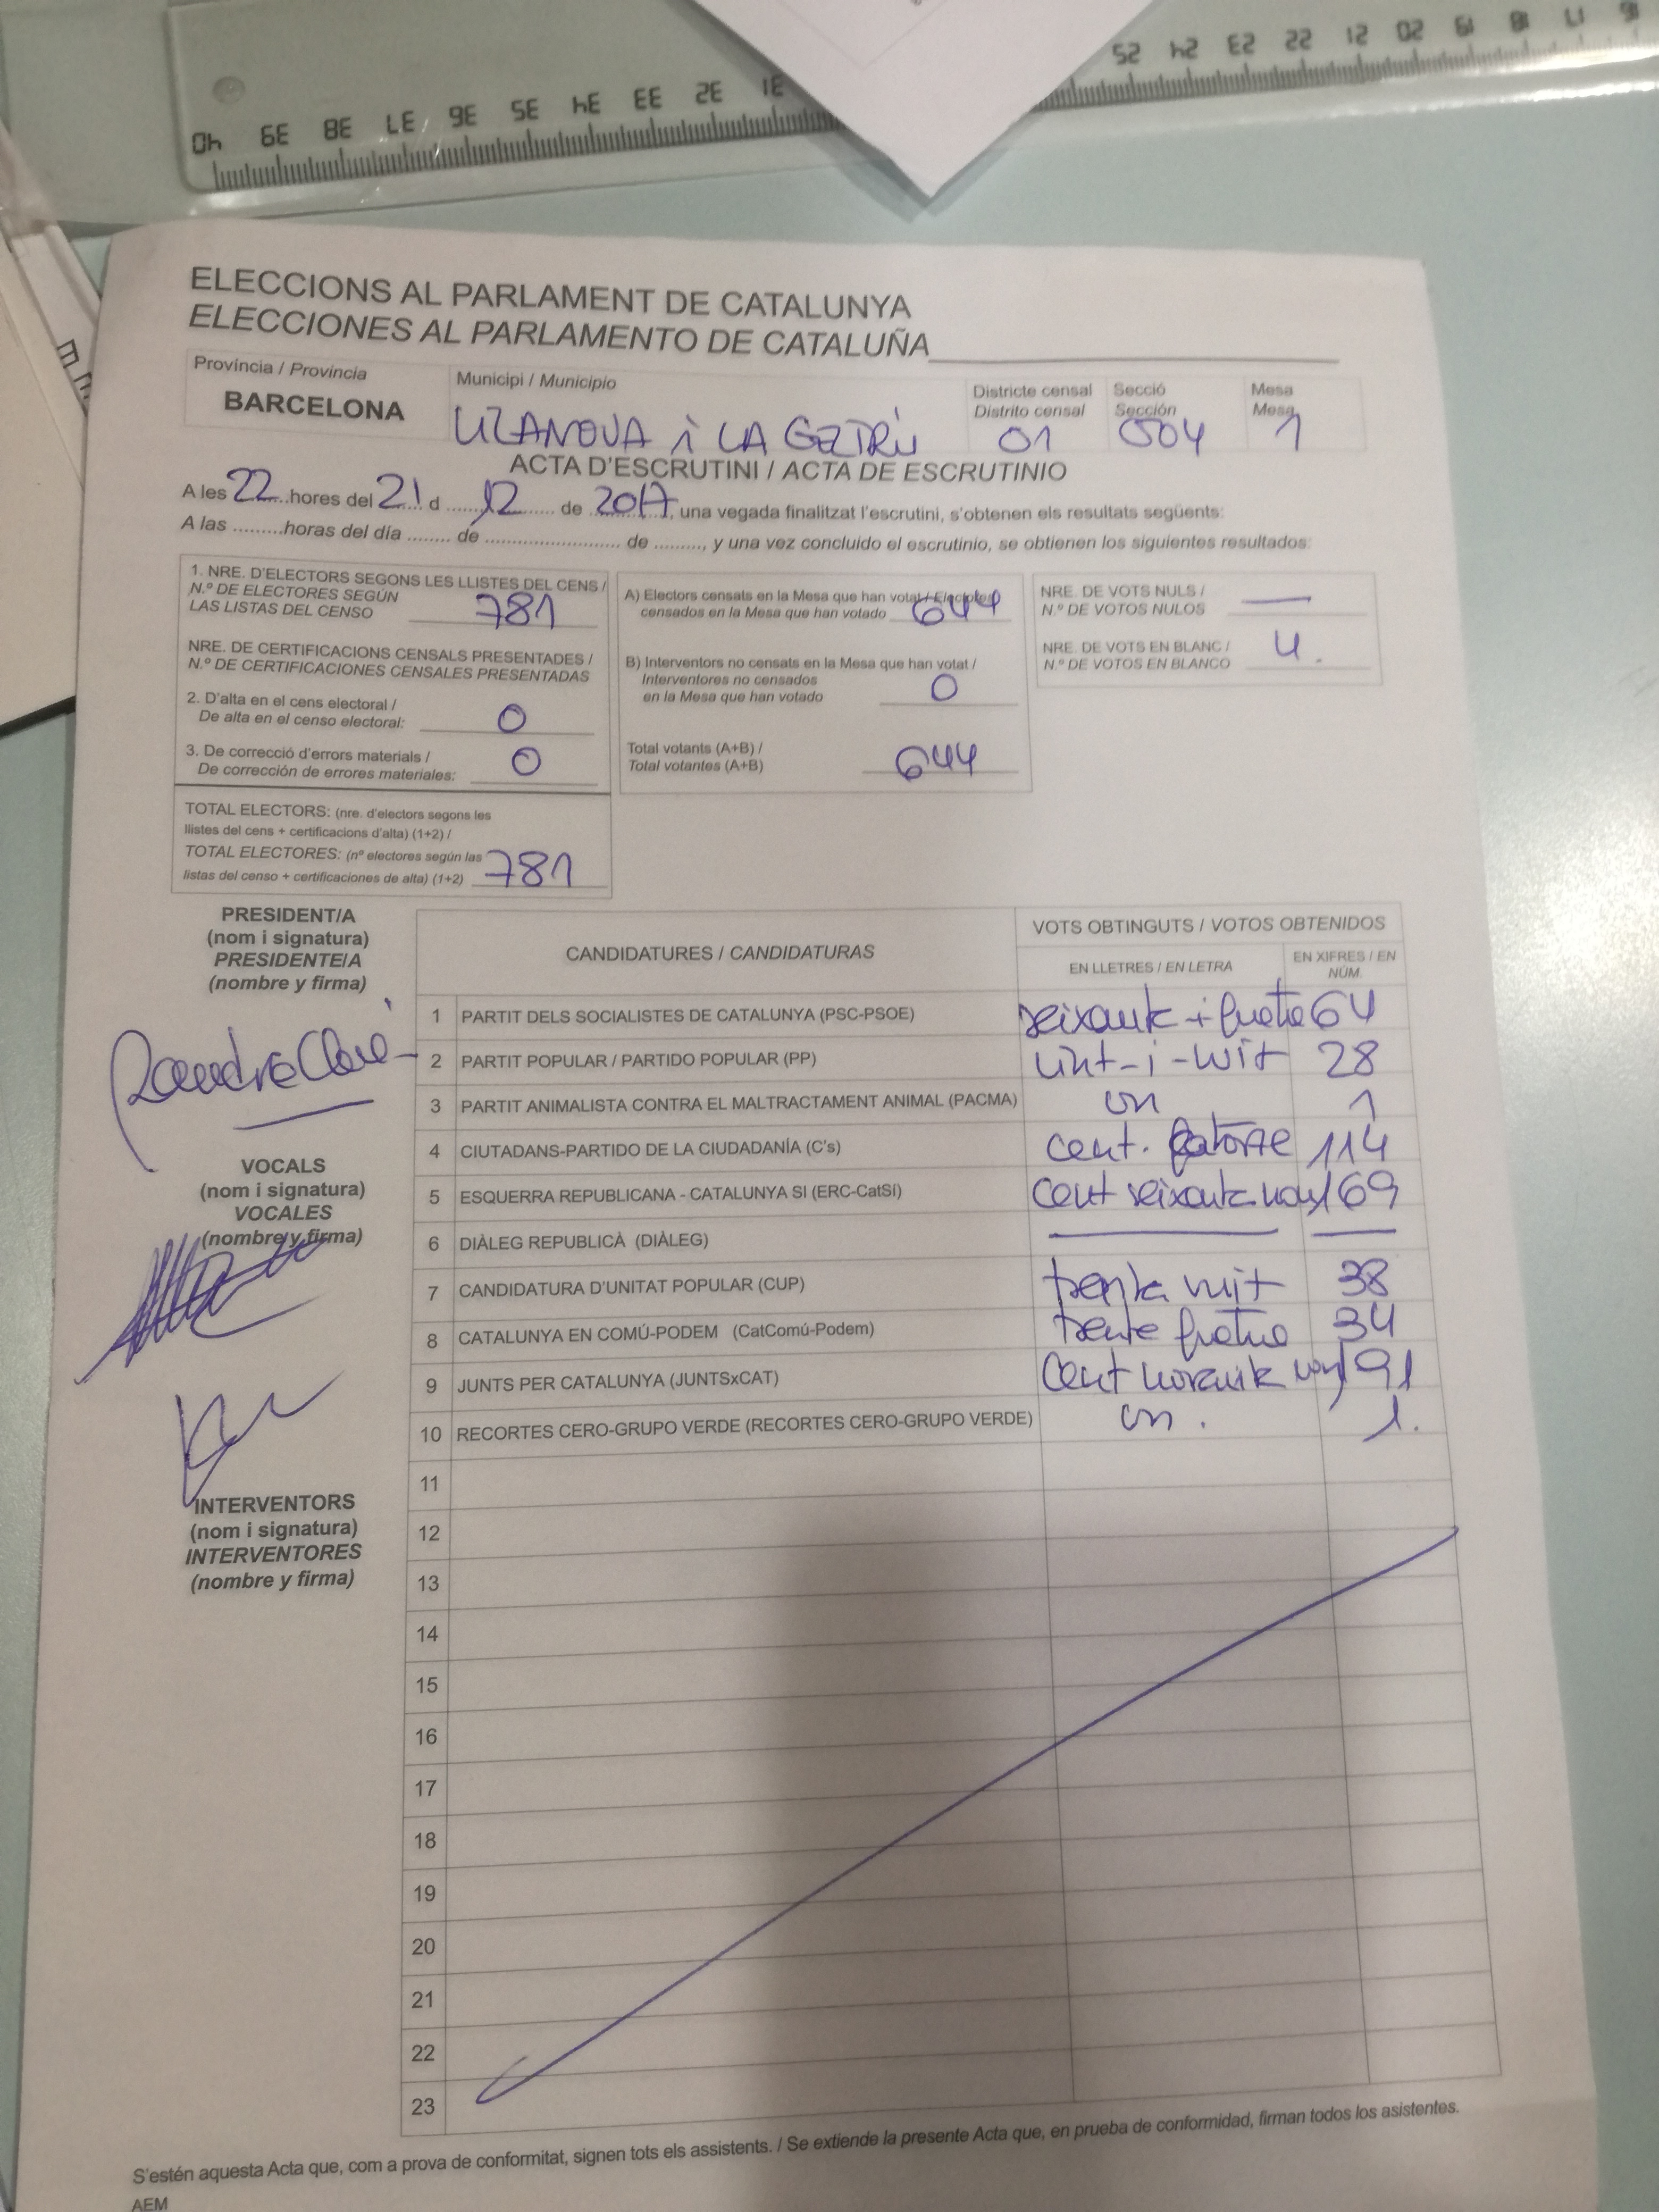 40 39 38 37 36 35 34 33 32 31 25 24 23 22 21 20 19 18 17 16
ELECCIONS AL PARLAMENT DE CATALUNYA
ELECCIONES AL PARLAMENTO DE CATALUÑA
Província / Provincia Municipi / Municipio Districte censal Secció Mesa
Distrito censal Sección Mesa
BARCELONA VILANOVA i LA GELTRÚ 01 004 1
ACTA D'ESCRUTINI / ACTA DE ESCRUTINIO
A les 22 hores del 21 d 12 de 2017, una vegada finalitzat l'escrutini, s'obtenen els resultats següents:
A las .........horas del día ........ de ........................ de ........., y una vez concluido el escrutinio, se obtienen los siguientes resultados:
1. NRE. D'ELECTORS SEGONS LES LLISTES DEL CENS /
N.º DE ELECTORES SEGÚN
LAS LISTAS DEL CENSO 781
NRE. DE CERTIFICACIONS CENSALS PRESENTADES /
N.º DE CERTIFICACIONES CENSALES PRESENTADAS
2. D'alta en el cens electoral /
De alta en el censo electoral: 0
3. De correcció d'errors materials /
De corrección de errores materiales: 0
TOTAL ELECTORS: (nre. d'electors segons les
llistes del cens + certificacions d'alta) (1+2) /
TOTAL ELECTORES: (nº electores según las
listas del censo + certificaciones de alta) (1+2) 781
A) Electors censats en la Mesa que han votat / Electores
censados en la Mesa que han votado 644
B) Interventors no censats en la Mesa que han votat /
Interventores no censados
en la Mesa que han votado 0
Total votants (A+B) /
Total votantes (A+B) 644
NRE. DE VOTS NULS /
N.º DE VOTOS NULOS —
NRE. DE VOTS EN BLANC /
N.º DE VOTOS EN BLANCO 4.
PRESIDENT/A
(nom i signatura)
PRESIDENTE/A
(nombre y firma)
VOCALS
(nom i signatura)
VOCALES
(nombre y firma)
INTERVENTORS
(nom i signatura)
INTERVENTORES
(nombre y firma)
CANDIDATURES / CANDIDATURAS VOTS OBTINGUTS / VOTOS OBTENIDOS
EN LLETRES / EN LETRA EN XIFRES / EN NÚM.
1 PARTIT DELS SOCIALISTES DE CATALUNYA (PSC-PSOE) seixanta i quatre 64
2 PARTIT POPULAR / PARTIDO POPULAR (PP) vint-i-vuit 28
3 PARTIT ANIMALISTA CONTRA EL MALTRACTAMENT ANIMAL (PACMA) un 1
4 CIUTADANS-PARTIDO DE LA CIUDADANÍA (C's) cent. catorze 114
5 ESQUERRA REPUBLICANA - CATALUNYA SI (ERC-CatSí) cent seixanta nou 169
6 DIÀLEG REPUBLICÀ (DIÀLEG) — —
7 CANDIDATURA D'UNITAT POPULAR (CUP) trenta vuit 38
8 CATALUNYA EN COMÚ-PODEM (CatComú-Podem) trenta quatre 34
9 JUNTS PER CATALUNYA (JUNTSxCAT) cent noranta 191
10 RECORTES CERO-GRUPO VERDE (RECORTES CERO-GRUPO VERDE) un. 1.
11
12
13
14
15
16
17
18
19
20
21
22
23
S'estén aquesta Acta que, com a prova de conformitat, signen tots els assistents. / Se extiende la presente Acta que, en prueba de conformidad, firman todos los asistentes.
AEM